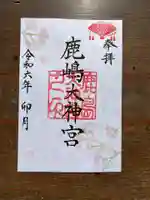 奉拝
鹿嶋大神宮
令和六年 卯月